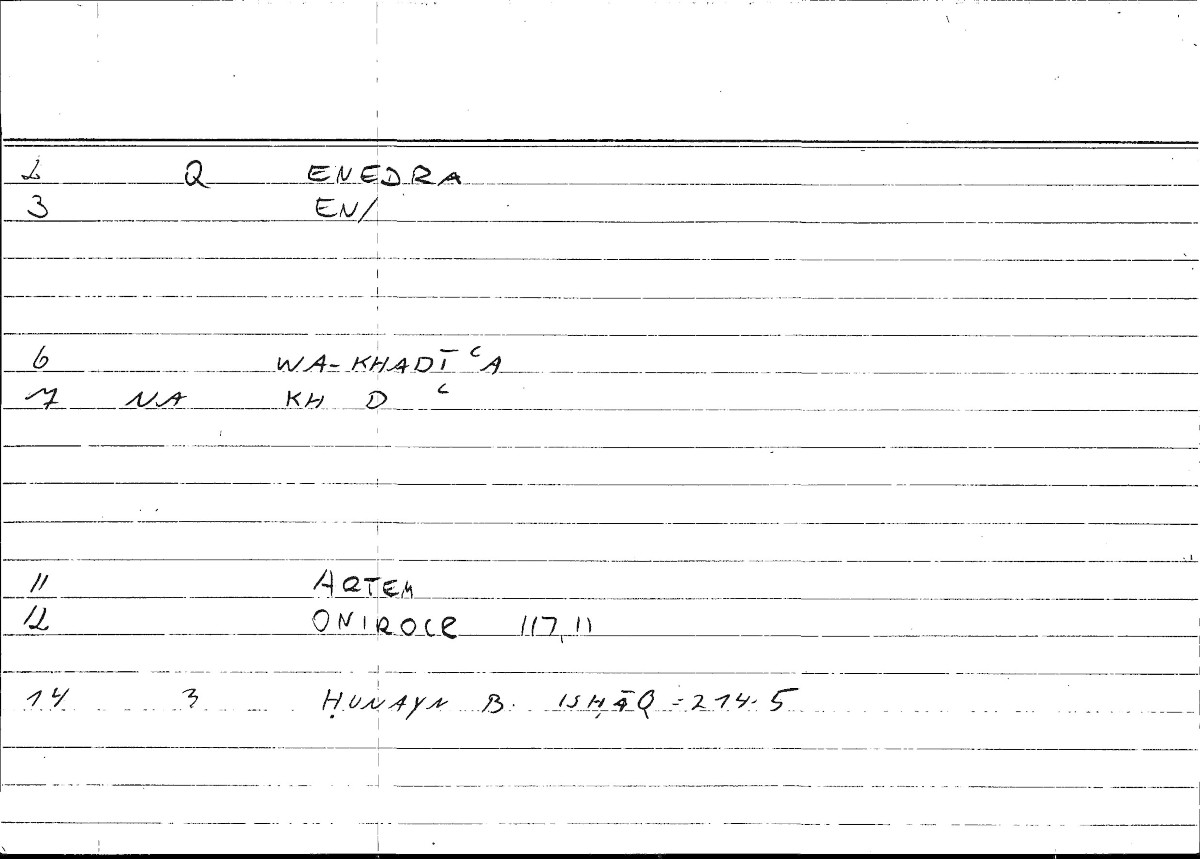 2 Q ENEDRA
3 EN/
6 WA-KHADĪ ͨA
7 NA KH D ͨ
11 ARTEM
12 ONIROCR 117,11
14 3 ḤUNAYN B. ISḤĀQ = 214.5